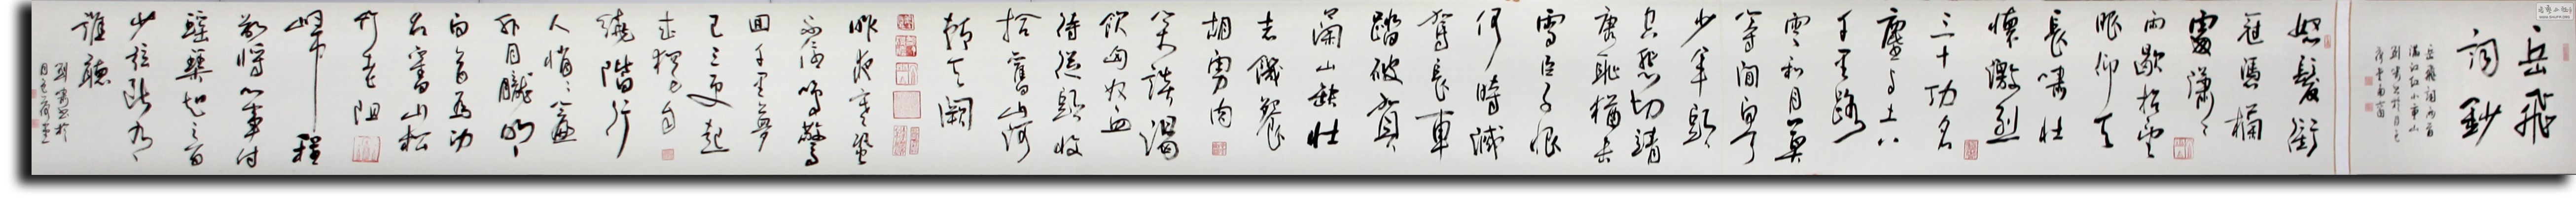 岳飛
詞鈔
岳飛詞两首
滿江红小重山
怒髮衝
冠憑欄
處瀟々
雨歇抬望
眼仰天
長嘯壮
懷激烈
三十功名
塵与土八
千里路
雲和月莫
等閒白了
少年頭
空悲切靖
康耻猶未
雪臣子恨
何時滅
駕長車
踏破賀
蘭山缺壮
志饑餐
胡虜肉
笑談渴
飲匈奴血
待從頭收
拾舊山河
朝天闕
昨夜寒蛩
不住鳴驚
回千里夢
已三更起
来獨自
繞階行
人悄々簾
外月朧明
白首為功
名舊山松
竹老阻
歸程
欲將心事付
瑤琴知音
少弦断有
誰聽